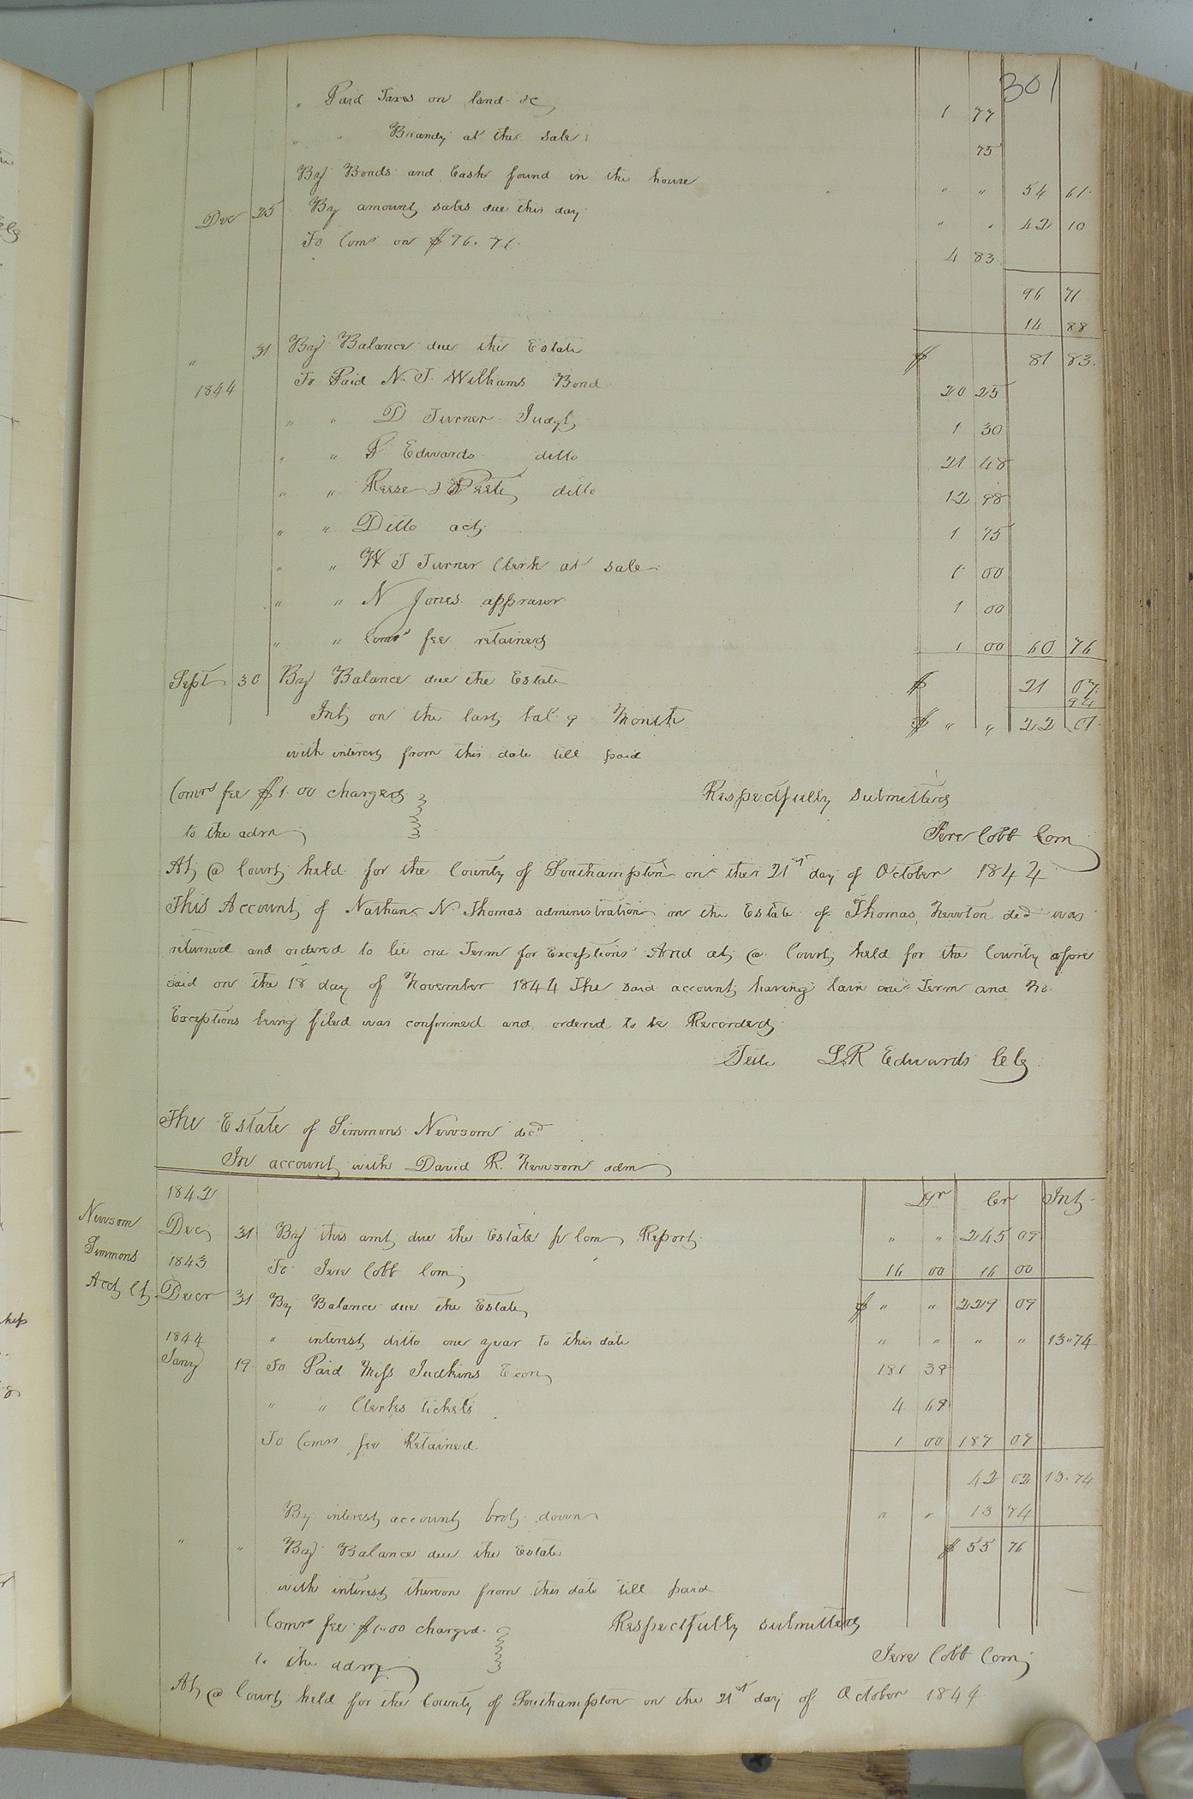 301
" Paid Taxes on land &c 1 77
" " Brandy at the sale 75
By Bonds and Cash found in the house " " 54 61
Dec 25 By amount sales due this day " " 42 10
To Coms on $96.71 4 83
96 71
14 88
" 31 By Balance due the Estate $ 81 83
1844 To Paid N. T. Williams Bond 20 25
" " D Turner Judgt 1 30
" " Edwards ditto 21 48
" " Reese & Peete ditto 12 98
" " Ditto act 1 75
" " W T Turner Clerk at sale 1 00
" " N Jones appraiser 1 00
" " Coms fee retained 1 00 60 76
Sept 30 By Balance due the Estate $ 21 07
94
Int on the last bal 9 Month $ " " 22 01
with interest from this date till paid
Comrs fee $1.00 charged Respectfully submitted
to the admr Jere Cobb Com
At a Court held for the County of Southampton on the 21st day of October 1844
This Account of Nathan N Thomas administration on the Estate of Thomas Newton decd was
returned and ordered to lie one Term for Exceptions And at a Court held for the County afore
said on the 18 day of November 1844 The said account having lain one Term and no
Exceptions being filed was confirmed and ordered to be Recorded
Teste L.R Edwards Clk
The Estate of Simmons Newsom decd
In account with David R. Newsom adm
1842 Dr Cr Int
Newsom Simmons Acct Ct
Dec 31 By this amt due the Estate pr Com Report " " 245 09
1843 To Jere Cobb Com 16 00 16 00
Decr 31 By Balance due the Estate $ " " 229 09
1844 " interest ditto one year to this date " " " " 13.74
Jany 19 To Paid Judkins Exon 181 39
" " Clerks tickets 4 68
To Comrs fee Retained 1 00 187 07
42 02 13.74
By interest account brot down " " 13 74
" " By Balance due the Estate $ 55 76
with interest thereon from this date till paid
Comrs fee $1.00 charged Respectfully submitted
to the admr Jere Cobb Com
At a Court held for the County of Southampton on the 21st day of October 1844